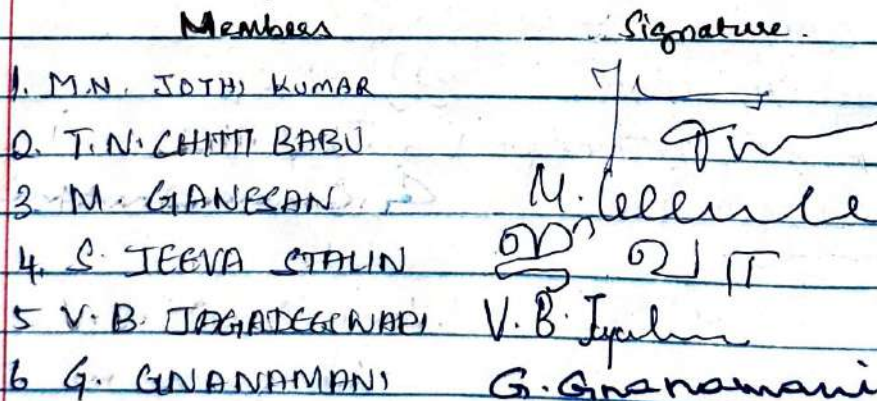 Members Signature.
1. M.N. JOTHI KUMAR
2. T.N. CHITTI BABU
3 M. GANESAN M.
4. S. JEEVA STALIN ஜீவா
5 V. B. JAGADEESWARI V. B.
6 G. GNANAMANI G. Gnanamani